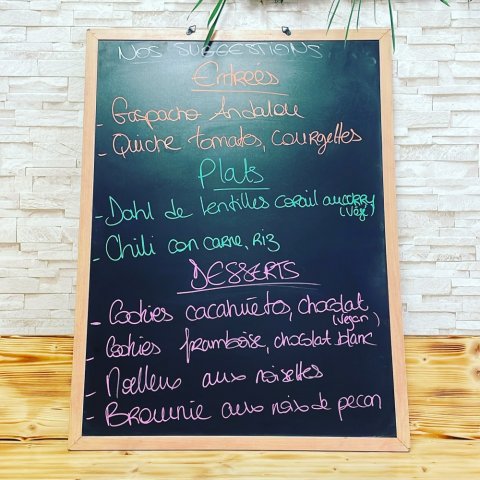 NOS SUGGESTIONS
Entreés
- Gaspacho Andalou
- Quiche tomates, courgettes
Plats
- Dahl de lentilles corail au curry
(Végé)
- Chili con carne, riz
DESSERTS
- Cookies cacahuètes, chocolat
(vegan)
- Cookies framboise, chocolat blanc
- Moelleux aux noisettes
- Brownie aux noix de pecan